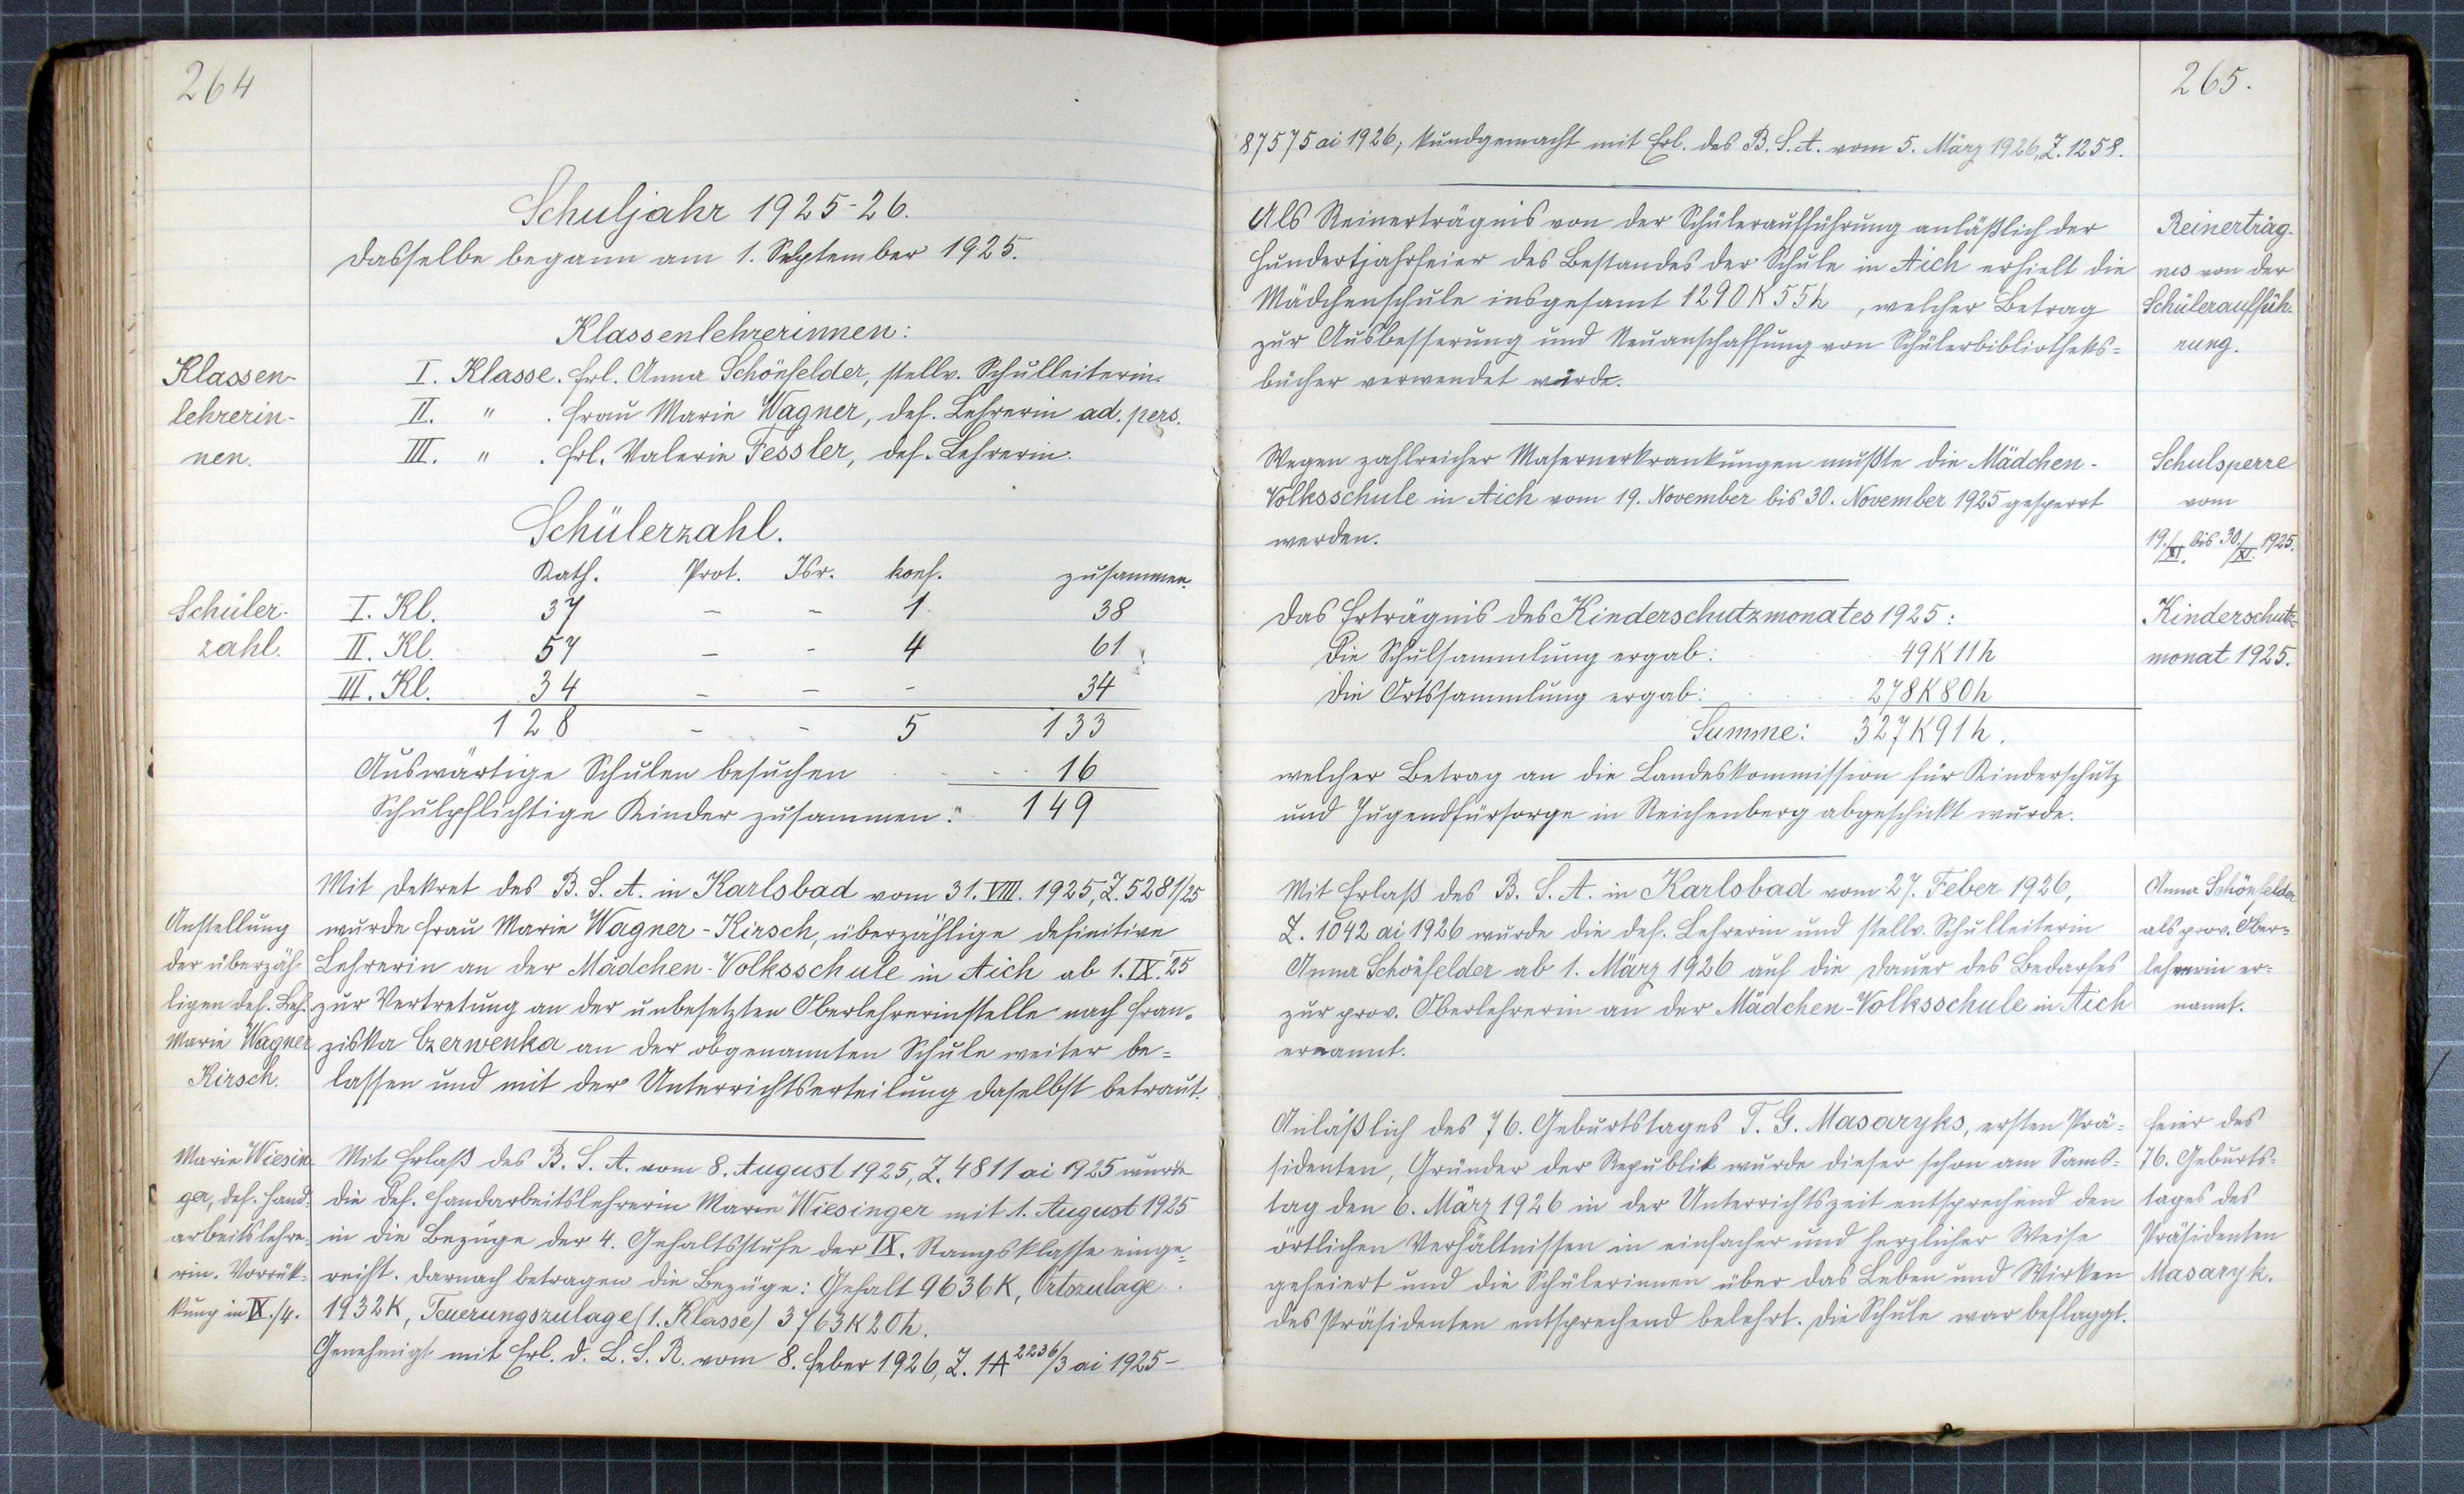 264
Schuljahr 1925-26.
Dasselbe begann am 1. September 1925.
Klassenlehrerinnen:
Klassen-
lehrerin-
nen.
I. Klasse. Frl. Anna Schönfelder, stellv. Schulleiterin.
II. " . Frau Marie Wagner, def. Lehrerin ad. pers.
III. " . Frl. Valerie Fessler, def. Lehrerin.
Schülerzahl.
Kath. Prot. Isr. konf. zusammen.
Schüler-
zahl.
I. Kl. 37 - - 1 38
II. Kl. 57 - - 4 61
III. Kl. 34 - - - 34
128 - - 5 133
Auswärtige Schulen besuchen . . . 16
Schulpflichtige Kinder zusammen: 149
Anstellung
der überzäh-
ligen def. Leh.
Marie Wagner
Kirsch.
Mit Dekret des B. S. A. in Karlsbad vom 31. VIII. 1925, Z. 5281/25
wurde Frau Marie Wagner-Kirsch, überzählige definitive
Lehrerin an der Mädchen-Volksschule in Aich ab 1. IX. 25
zur Vertretung an der unbesetzten Oberlehrerinstelle nach Fran-
ziska Czerwenka an der obgenannten Schule weiter be-
lassen und mit der Unterrichtserteilung daselbst betraut.
Marie Wiesin-
ger, def. Hand-
arbeitslehre-
rin. Vorrük-
kung in IX./4.
Mit Erlaß des B. S. A. vom 8. August 1925, Z. 4811 ai 1925 wurde
die def. Handarbeitslehrerin Marie Wiesinger mit 1. August 1925
in die Bezüge der 4. Gehaltsstufe der IX. Rangsklasse einge-
reiht. Darnach betragen die Bezüge: Gehalt 9636 K, Ortszulage
1932 K, Teuerungszulage (1. Klasse) 3763 K 20 h.
Genehmigt mit Erl. d. L. S. R. vom 8. Feber 1926, Z. 1A 2236/3 ai 1925-
265.
87575 ai 1926, kundgemacht mit Erl. des B. S. A. vom 5. März 1926, Z. 1258.
Als Reinerträgnis von der Schüleraufführung anläßlich der
Hundertjahrfeier des Bestandes der Schule in Aich erhielt die
Mädchenschule insgesamt 1290 K 55 h, welcher Betrag
zur Ausbesserung und Neuanschaffung von Schülerbibliotheks-
bücher verwendet wurde.
Reinerträg-
nis von der
Schülerauffüh-
rung.
Wegen zahlreicher Masernerkrankungen mußte die Mädchen-
Volksschule in Aich vom 19. November bis 30. November 1925 gesperrt
werden.
Schulsperre
vom
19./XI. bis 30./XI. 1925.
Das Erträgnis des Kinderschutzmonates 1925:
Die Schulsammlung ergab: 49 K 11 h
Die Ortssammlung ergab: 278 K 80 h
Summe: 327 K 91 h.
welcher Betrag an die Landeskommission für Kinderschutz
und Jugendfürsorge in Reichenberg abgeschickt wurde.
Kinderschutz-
monat 1925.
Mit Erlaß des B. S. A. in Karlsbad vom 27. Feber 1926,
Z. 1042 ai 1926 wurde die def. Lehrerin und stellv. Schulleiterin
Anna Schönfelder ab 1. März 1926 auf die Dauer des Bedarfes
zur prov. Oberlehrerin an der Mädchen-Volksschule in Aich
ernannt.
Anna Schönfelder
als prov. Ober-
lehrerin er-
nannt.
Anläßlich des 76. Geburtstages T. G. Masaryks, ersten Prä-
sidenten, Gründer der Republik wurde dieser schon am Sams-
tag den 6. März 1926 in der Unterrichtszeit entsprechend den
örtlichen Verhältnissen in einfacher und herzlicher Weise
gefeiert und die Schülerinnen über das Leben und Wirken
des Präsidenten entsprechend belehrt. Die Schule war beflaggt.
Feier des
76. Geburts-
tages des
Präsidenten
Masaryk.